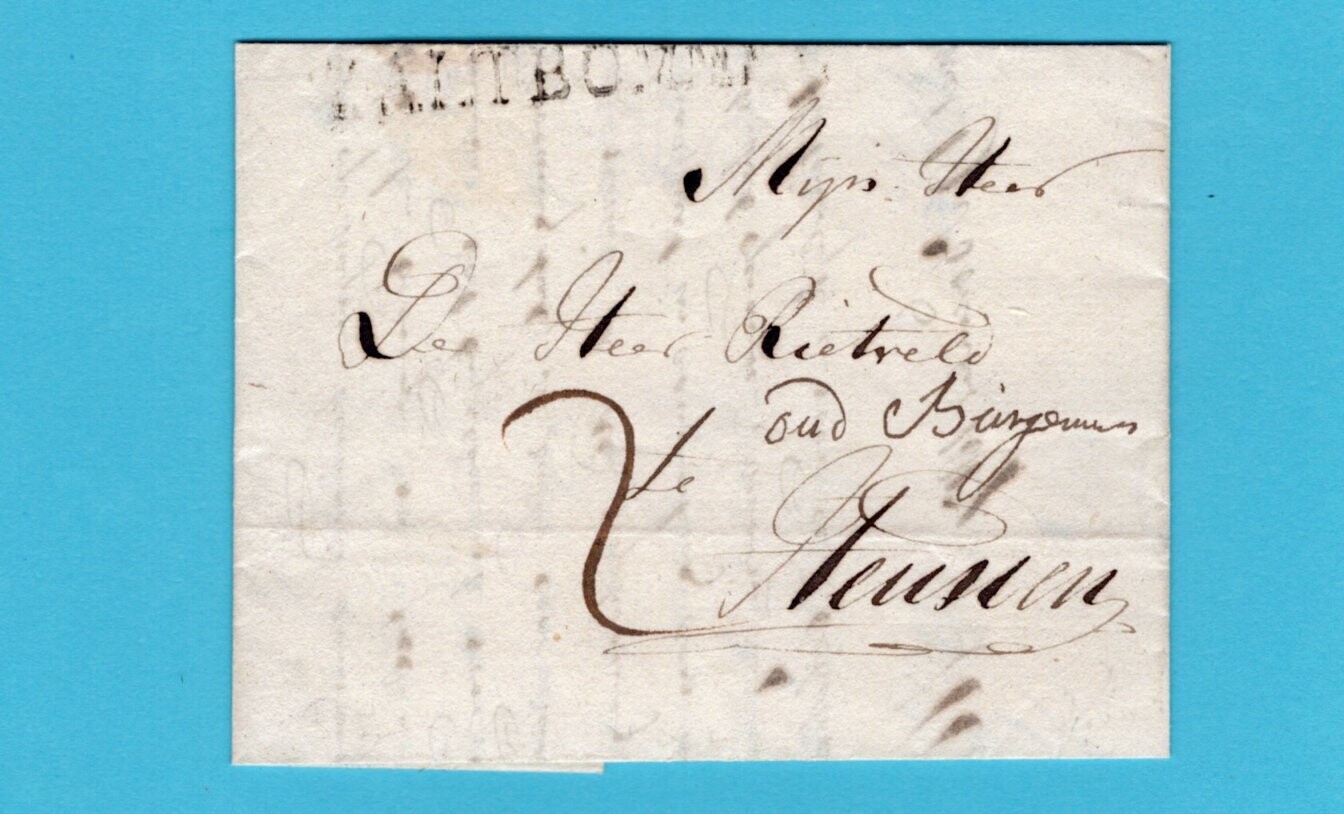 ZALTBOMMEL
Mijn Heer
De Heer Rietveld
oud Burgemr
2 te
Heusden